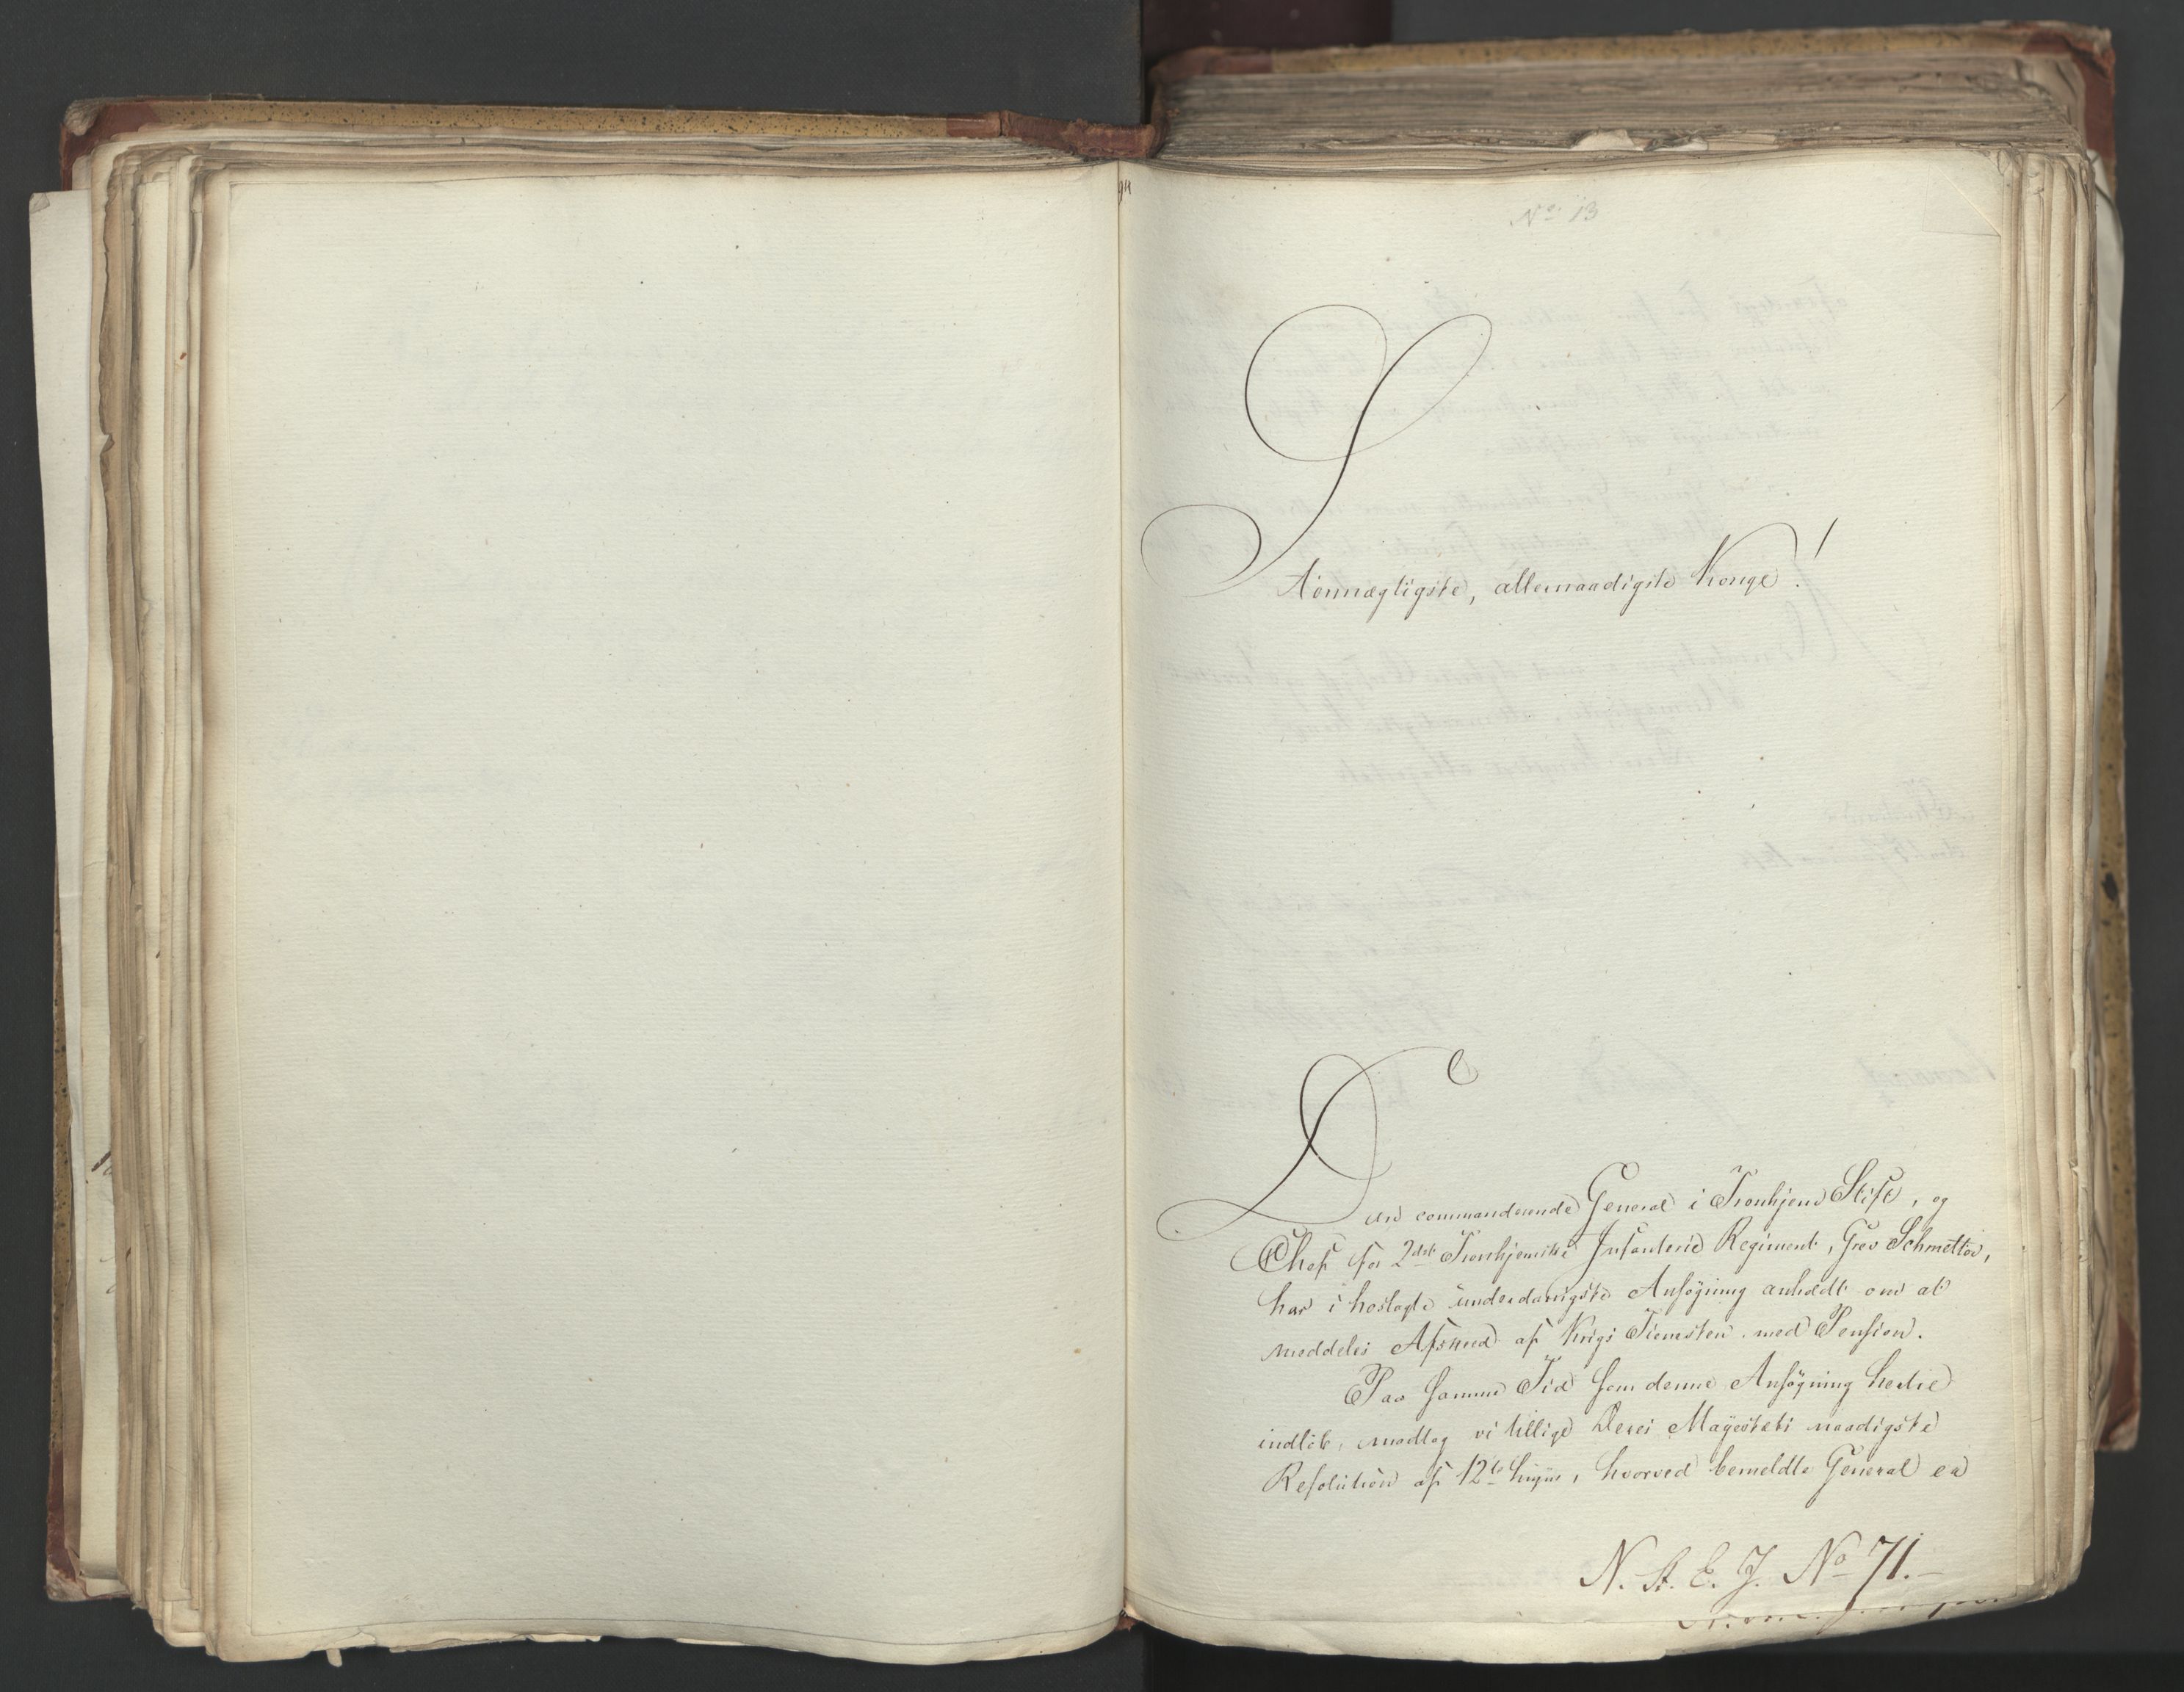 No 13
Stormægtigste, allernaadigste Konge!
Den commanderende General i Tronhjems Stift, og
Chef for 2det Tronhjemske Infanterie Regiment, Grev Schmettov,
har i hoslagte underdanigste Ansøgning anholdt om at
meddeles Afskeed af Krigs Tienesten med Pension.
Paa samme Tid som denne Ansøgning hertil
indløb, modtog vi tillige Deres Majestæts naadigste
Resolution af 12te hujus, hvorved bemeldte General er
N. St. E. J. No 71.